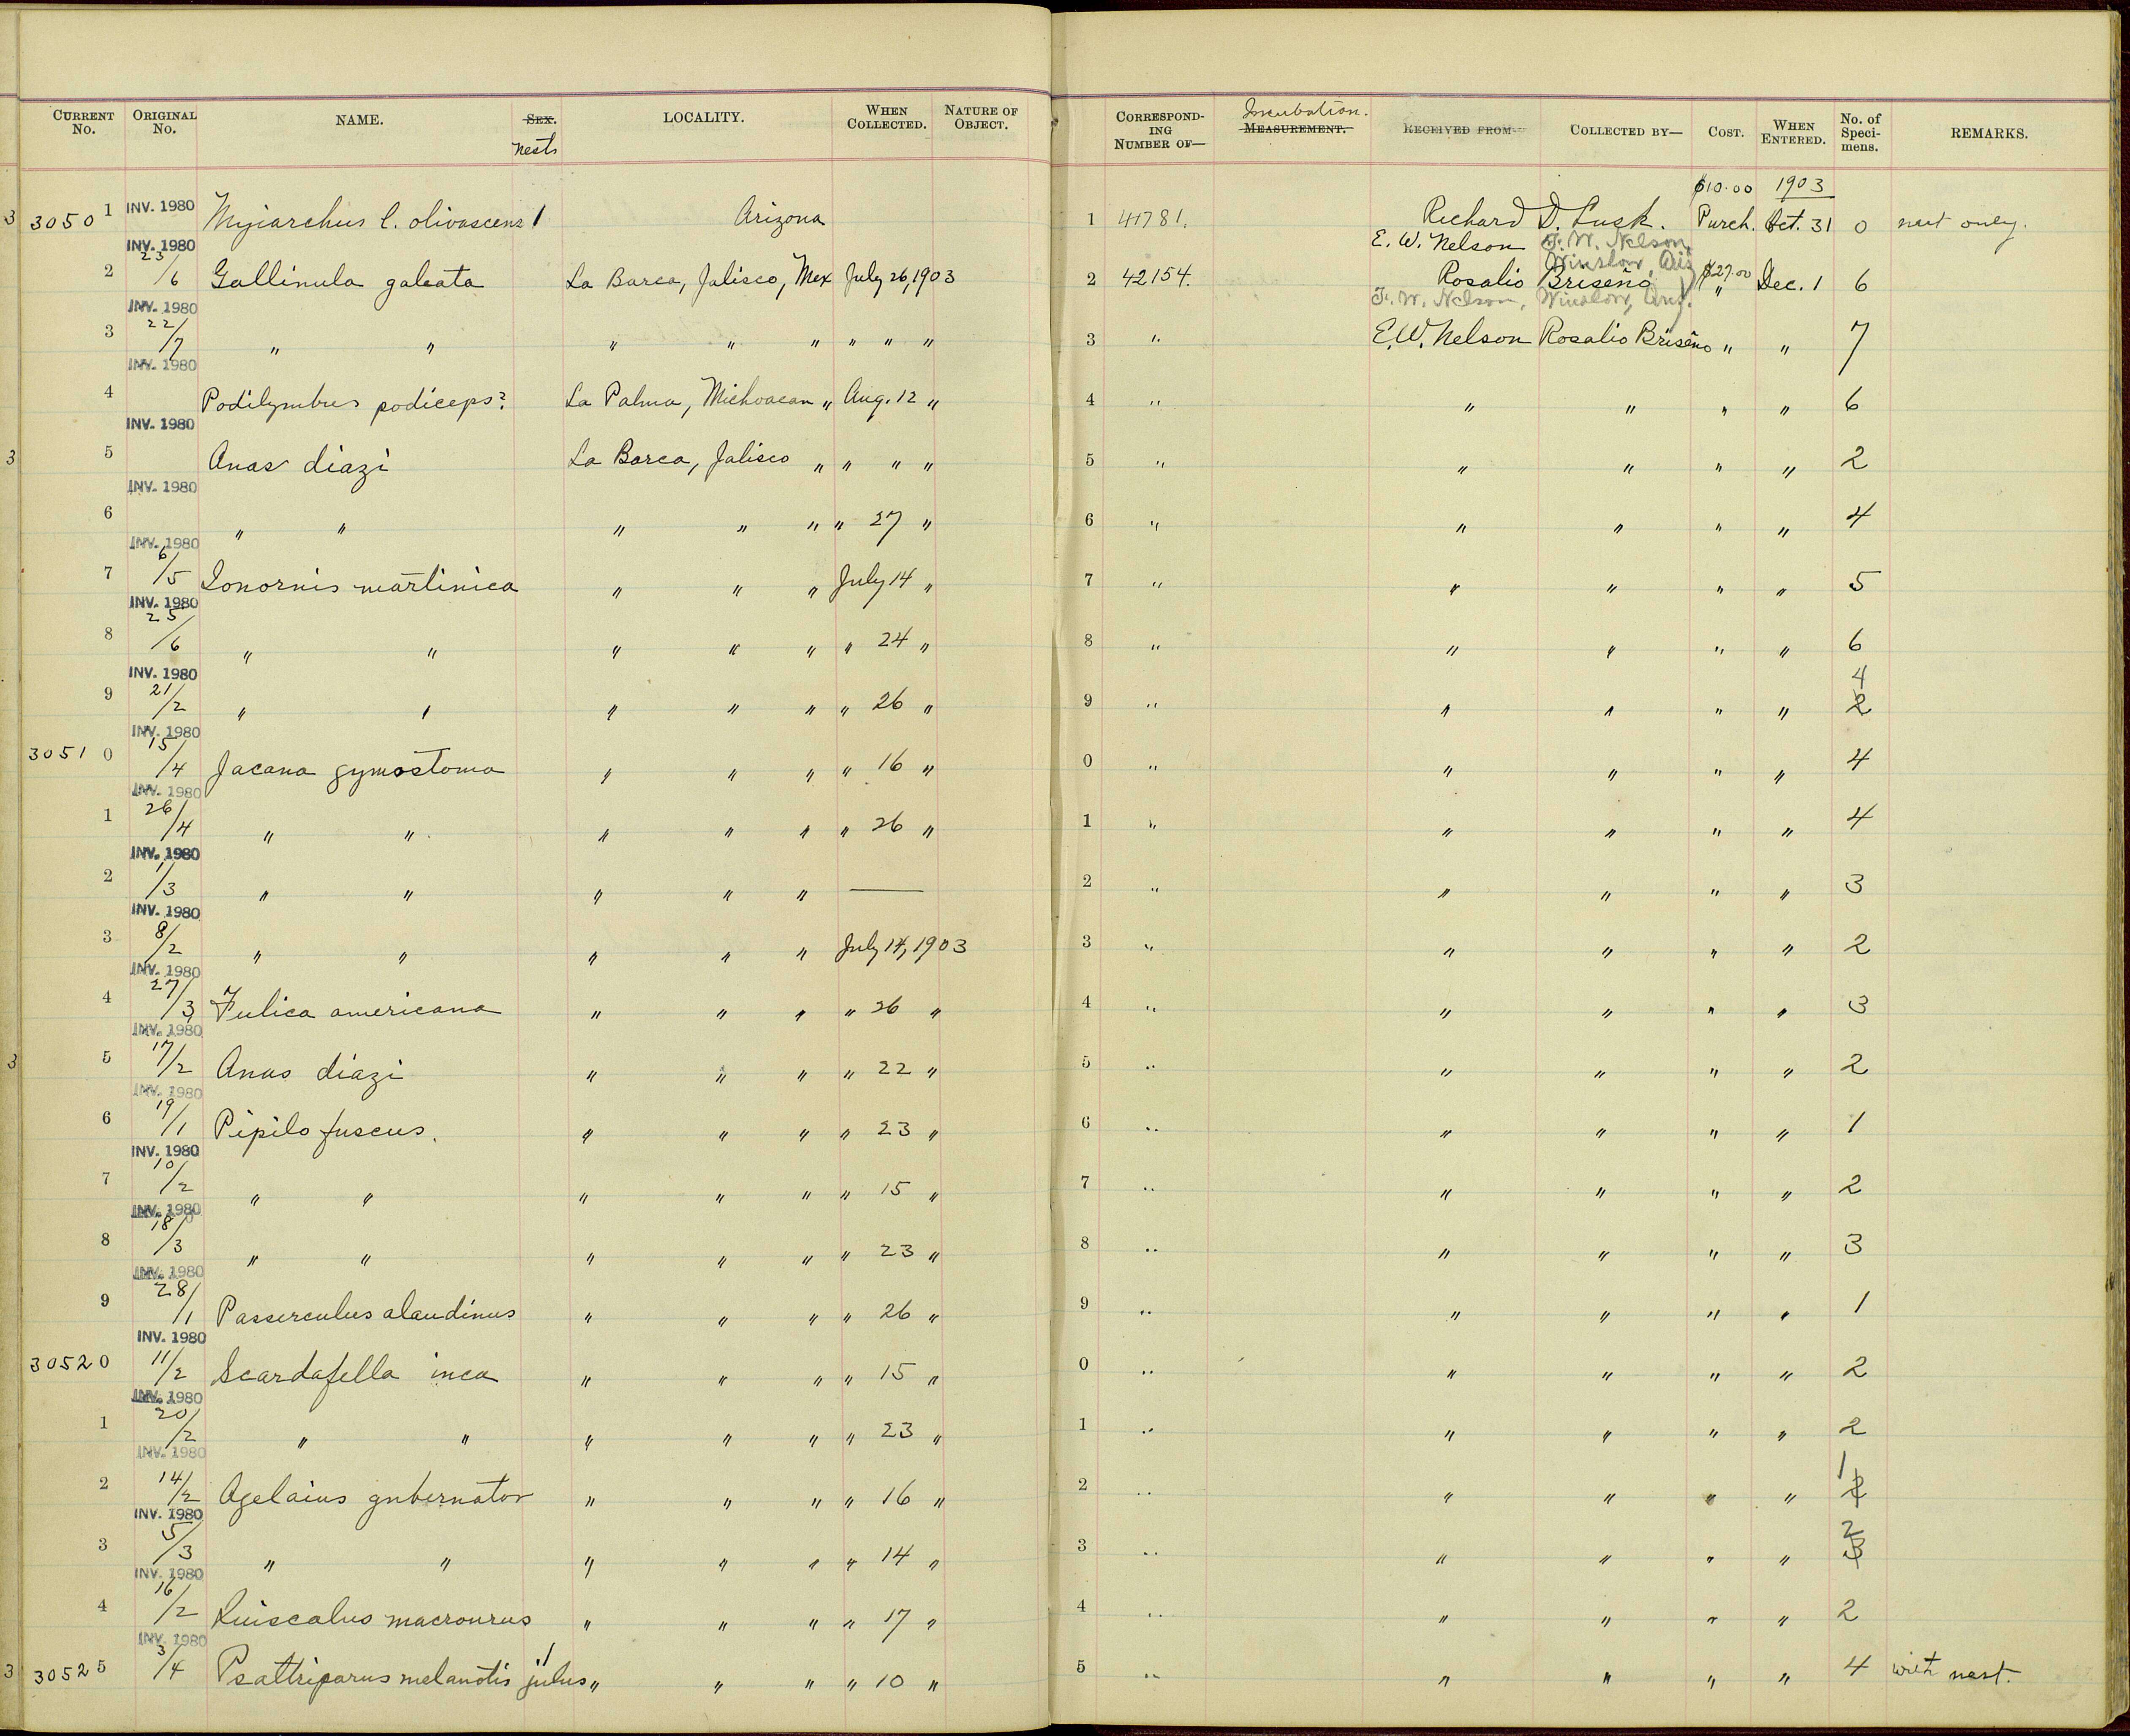 CURRENT No. ORIGINAL No. NAME. SEX. LOCALITY. WHEN COLLECTED. NATURE OF OBJECT. CORRESPONDING NUMBER OF— MEASUREMENT. RECEIVED FROM— COLLECTED BY— COST. WHEN ENTERED. No. of Specimens. REMARKS.
nests Incubation.
$10.00 1903
3 3050 1 INV. 1980 Myiarchus l. olivascens 1 Arizona 1 41781. Richard D. Lusk. Purch. Oct. 31 0 nest only.
INV. 1980 E. W. Nelson F. W. Nelson, Winslow, Ariz
2 23/6 Gallinula galeata La Barca, Jalisco, Mex July 26, 1903 2 42154. Rosalio Briseño $27.00 " Dec. 1 6
INV. 1980 F. W. Nelson, Winslow, Ariz.
3 22/7 " " " " " " " " 3 " E. W. Nelson Rosalio Briseño " " 7
INV. 1980
4 Podilymbus podiceps? La Palma, Michoacan " Aug. 12 " 4 " " " " " 6
INV. 1980
3 5 Anas diazi La Barca, Jalisco " " " " 5 " " " " " 2
INV. 1980
6 " " " " " " 27 " 6 " " " " " 4
INV. 1980
7 6/5 Ionornis martinica " " " July 14 " 7 " " " " " 5
INV. 1980
8 25/6 " " " " " " 24 " 8 " " " " " 6
INV. 1980
9 21/2 " " " " " " 26 " 9 " " " " " 4 2
INV. 1980
3051 0 15/4 Jacana gymostoma " " " " 16 " 0 " " " " " 4
INV. 1980
1 26/4 " " " " " " 26 " 1 " " " " " 4
INV. 1980
2 1/3 " " " " " — 2 " " " " " 3
INV. 1980
3 8/2 " " " " " July 14, 1903 3 " " " " " 2
INV. 1980
4 27/3 Fulica americana " " " " 26 " 4 " " " " " 3
INV. 1980
3 5 17/2 Anas diazi " " " " 22 " 5 " " " " " 2
INV. 1980
6 19/1 Pipilo fuscus. " " " " 23 " 6 " " " " " 1
INV. 1980
7 10/2 " " " " " " 15 " 7 " " " " " 2
INV. 1980
8 18/3 " " " " " " 23 " 8 " " " " " 3
INV. 1980
9 28/1 Passerculus alaudinus " " " " 26 " 9 " " " " " 1
INV. 1980
3052 0 11/2 Scardafella inca " " " " 15 " 0 " " " " " 2
INV. 1980
1 20/2 " " " " " " 23 " 1 " " " " " 2
INV. 1980
2 14/2 Agelaius gubernator " " " " 16 " 2 " " " " " 1 2
INV. 1980
3 5/3 " " " " " " 14 " 3 " " " " " 2 3
INV. 1980
4 16/2 Quiscalus macrourus " " " " 17 " 4 " " " " " 2
INV. 1980
3 3052 5 3/4 Psaltriparus melanotis julus 1 " " " " 10 " 5 " " " " " 4 with nest.